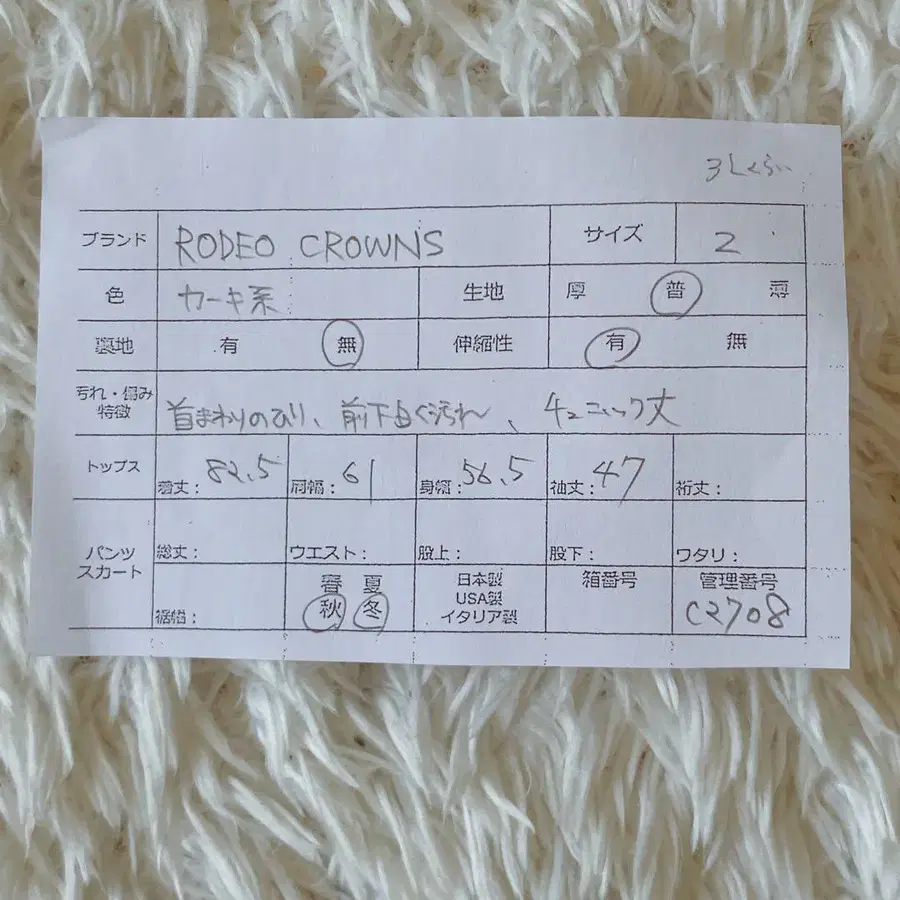 3Lくらい
ブランド RODEO CROWNS サイズ 2
色 カーキ系 生地 厚 普 薄
裏地 有 無 伸縮性 有 無
汚れ・傷み
特徴
首まわりのびり、前下白く汚れ、チュニック丈
トップス 着丈：82.5 肩幅：61 身幅：56.5 袖丈：47 裄丈：
パンツ
スカート
総丈： ウエスト： 股上： 股下： ワタリ：
裾幅：
春 夏
秋 冬
日本製
USA製
イタリア製
箱番号
管理番号
C2708